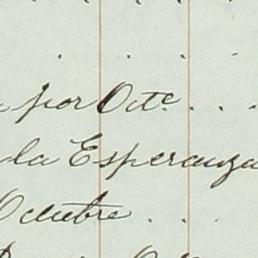 por Oct.e . . .
la Esperanza
Octubre . . .